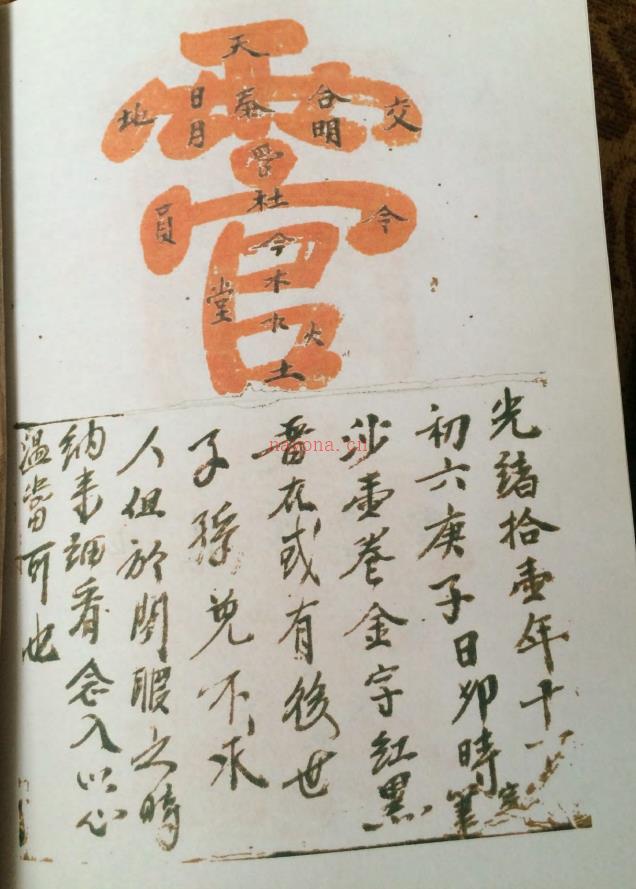 天
交
合明
泰
日月
地
杜
令
員
今
木
水
火
堂
土
光緒拾壺年十一
初六庚子日卯時筆
沙壺卷金字紅黑
番在或有後世
子孫免不求
人但於閒暇之時
納來細看念入以心
溫當可也
nayona.cn